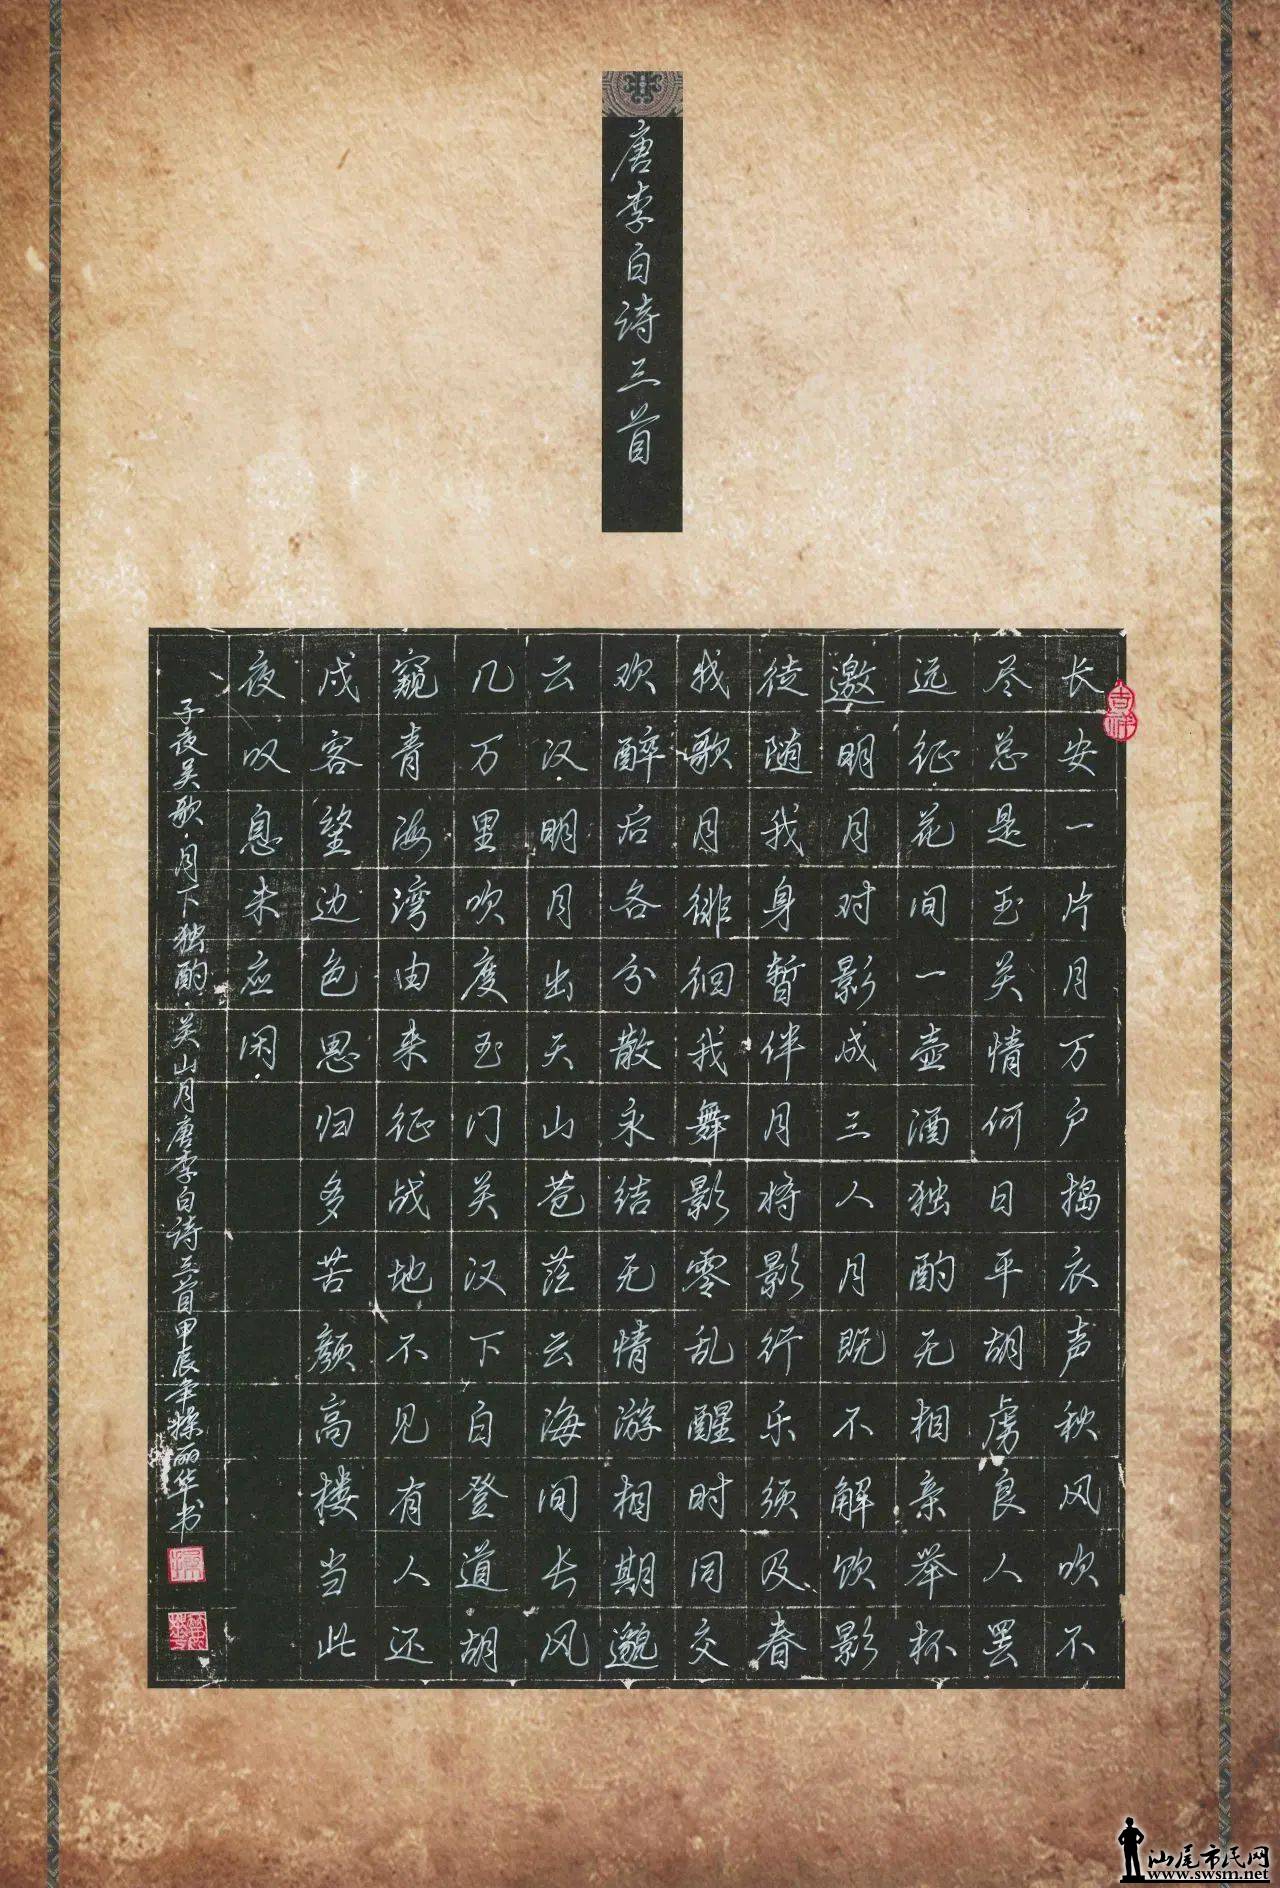 唐李白诗三首
长安一片月万户捣衣声秋风吹不
尽总是玉关情何日平胡虏良人罢
远征花间一壶酒独酌无相亲举杯
邀明月对影成三人月既不解饮影
徒随我身暂伴月将影行乐须及春
我歌月徘徊我舞影零乱醒时同交
欢醉后各分散永结无情游相期邈
云汉明月出天山苍茫云海间长风
几万里吹度玉门关汉下白登道胡
窥青海湾由来征战地不见有人还
戍客望边色思归多苦颜高楼当此
夜叹息未应闲
子夜吴歌·月下独酌·关山月唐李白诗三首甲辰年丽华书
吉祥
汕尾市民网
www.swsm.net